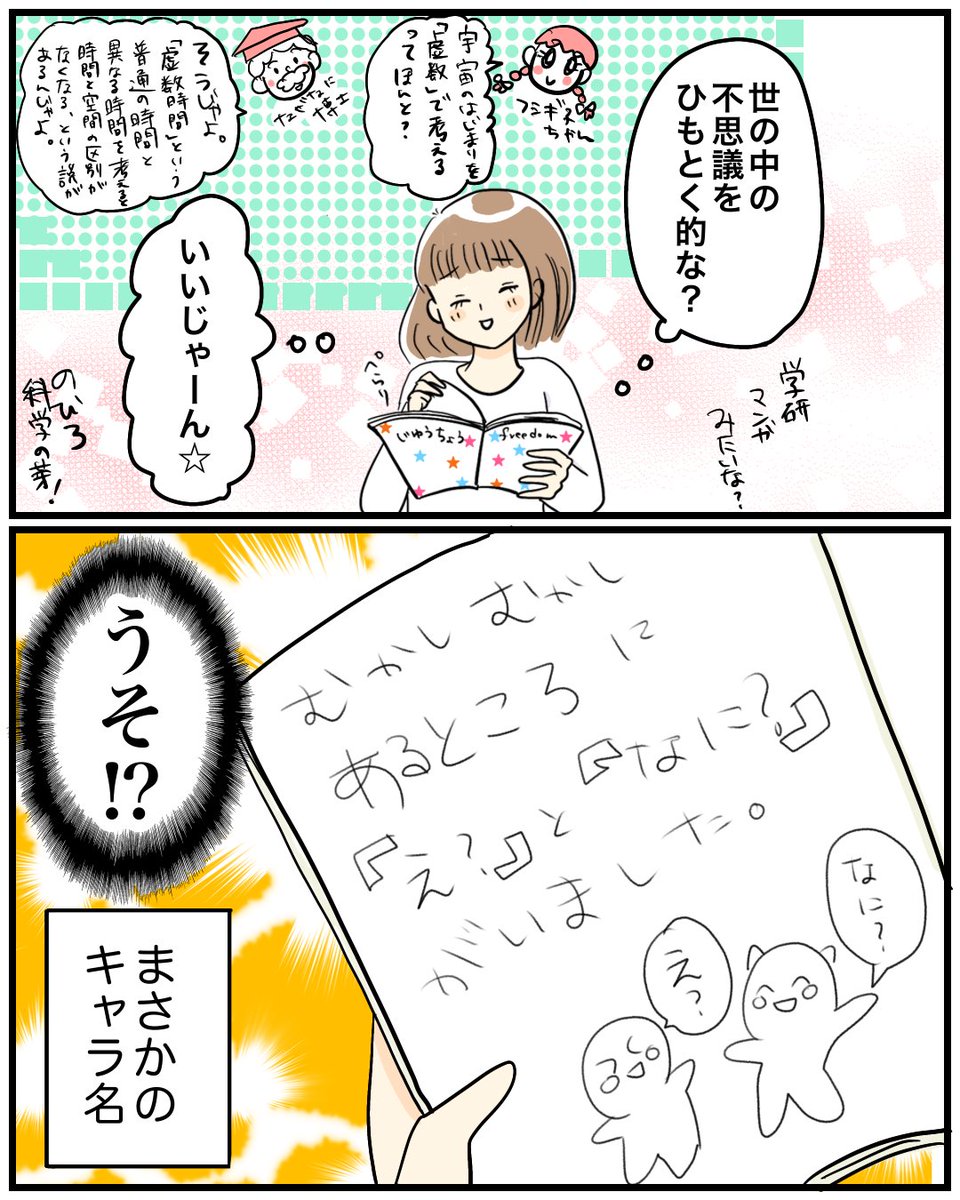 世の中の
不思議を
ひもとく的な?
学研
マンガ
みたいな?
フシギ
ちゃん
宇宙のはじまりを
「虚数」で考える
ってほんと?
なぜなに
博士
そうじゃよ。
「虚数時間」という
普通の時間と
異なる時間を考えると
時間と空間の区別が
なくなる、という説が
あるんじゃよ。
いいじゃーん☆
ぺらり
じゆうちょう
freedom
のびろ
科学の芽!
うそ!?
むかしむかし
あるところに
『え?』と『なに?』
がいました。
なに?
え?
まさかの
キャラ名